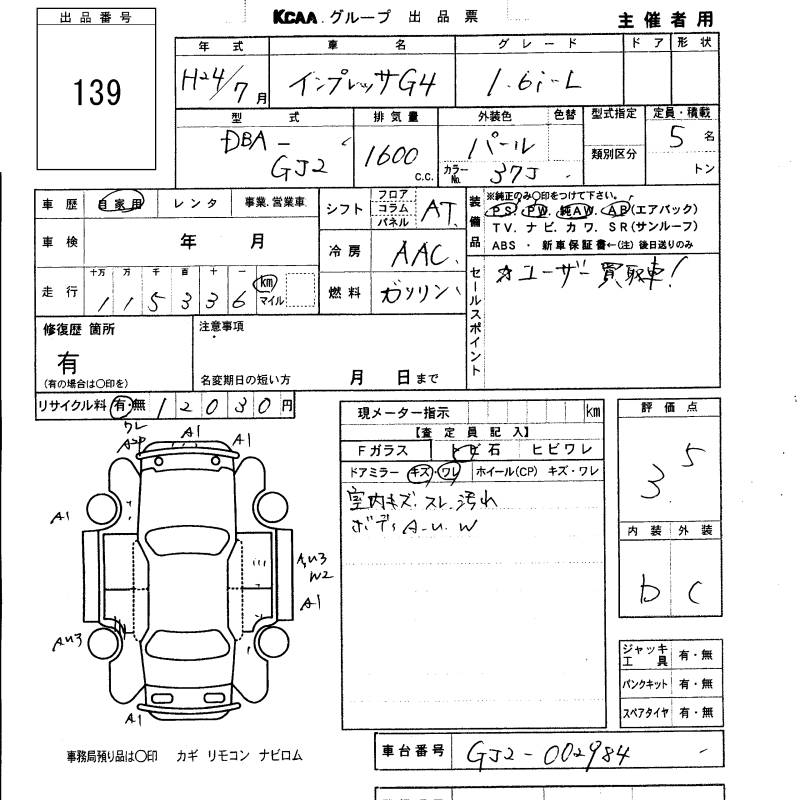 出品番号
139
KCAA.グループ 出品票
主催者用
年式 車名 グレード ドア 形状
H24/7月 インプレッサG4 1.6i-L
型式 排気量 外装色 色替 型式指定 定員・積載
DBA-GJ2 1600 c.c. パール 類別区分 5名
カラーNo. 37J トン
車歴 自家用 レンタ 事業.営業車
車検 年 月
走行 十万 万 千 百 十 一
115336 km マイル
シフト フロア コラム パネル AT
冷房 AAC
燃料 ガソリン
装備品
※純正のみ○印をつけて下さい。
PS. PW. 純AW. AB(エアバック)
TV. ナビ. カワ. SR(サンルーフ)
ABS ・ 新車保証書←(注) 後日送りのみ
セールスポイント
☆ユーザー買取車!
修復歴 箇所
有
(有の場合は○印を)
注意事項
名変期日の短い方 月 日まで
リサイクル料 有・無 12030円
現メーター指示 km
【査定員記入】
Fガラス トビ石 ヒビワレ
ドアミラー キズ・ワレ ホイール(CP) キズ・ワレ
室内キズ.スレ.汚れ
ボディA-U.W
評価点
3.5
内装 外装
D C
ジャッキ 工具 有・無
パンクキット 有・無
スペアタイヤ 有・無
ワレ
A2P
A1
A1
A1
A,U3
W2
A1
AU3
A1
事務局預り品は○印 カギ リモコン ナビロム
車台番号 GJ2-002984